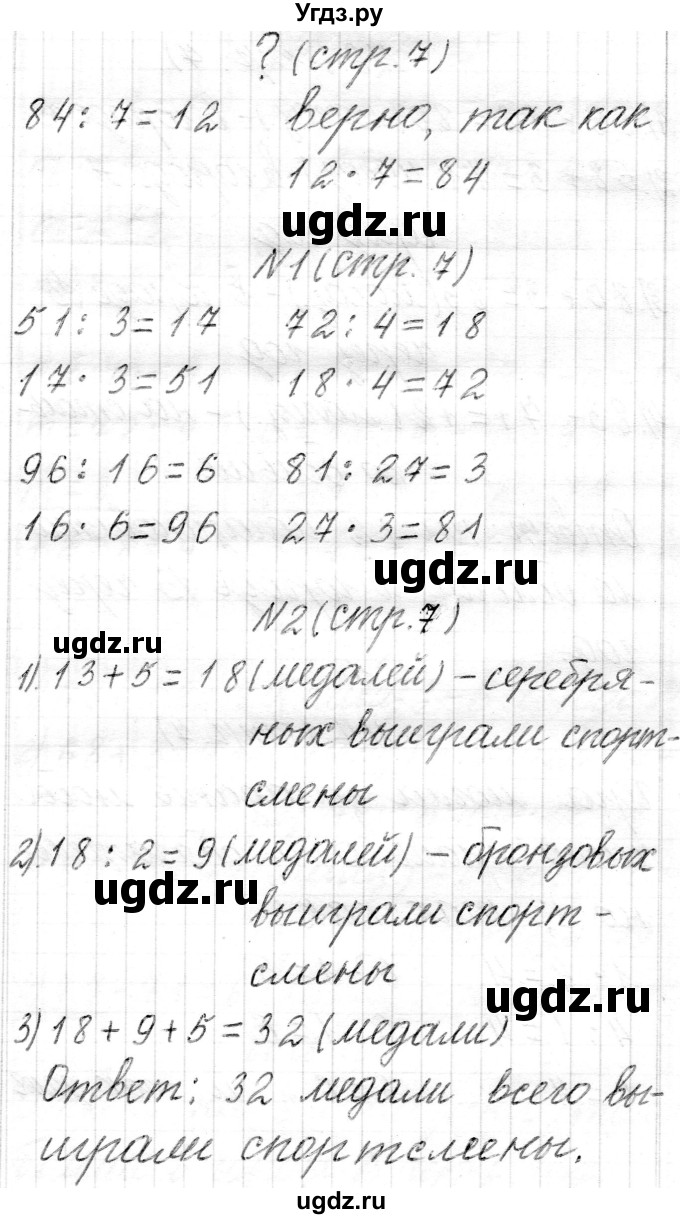 Угдз.ру
? (стр. 7)
84 : 7 = 12 верно, так как
12 · 7 = 84
ugdz.ru
№1 (стр. 7)
51 : 3 = 17 72 : 4 = 18
17 · 3 = 51 18 · 4 = 72
96 : 16 = 6 81 : 27 = 3
16 · 6 = 96 27 · 3 = 81
ugdz.ru
№2 (стр. 7)
ugdz.ru
1). 13 + 5 = 18 (медалей) – серебря-
ных выиграли спорт-
смены
2). 18 : 2 = 9 (медалей) – бронзовых
ugdz.ru
выиграли спорт-
смены
ugdz.ru
3) 18 + 9 + 5 = 32 (медали)
Ответ: 32 медали всего вы-
играли спортсмены.
ugdz.ru